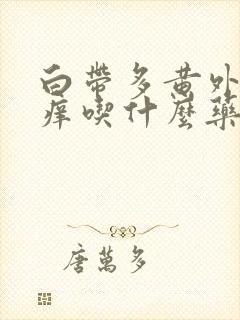 白帶多黃外
痒喫什麼藥
唐萬多